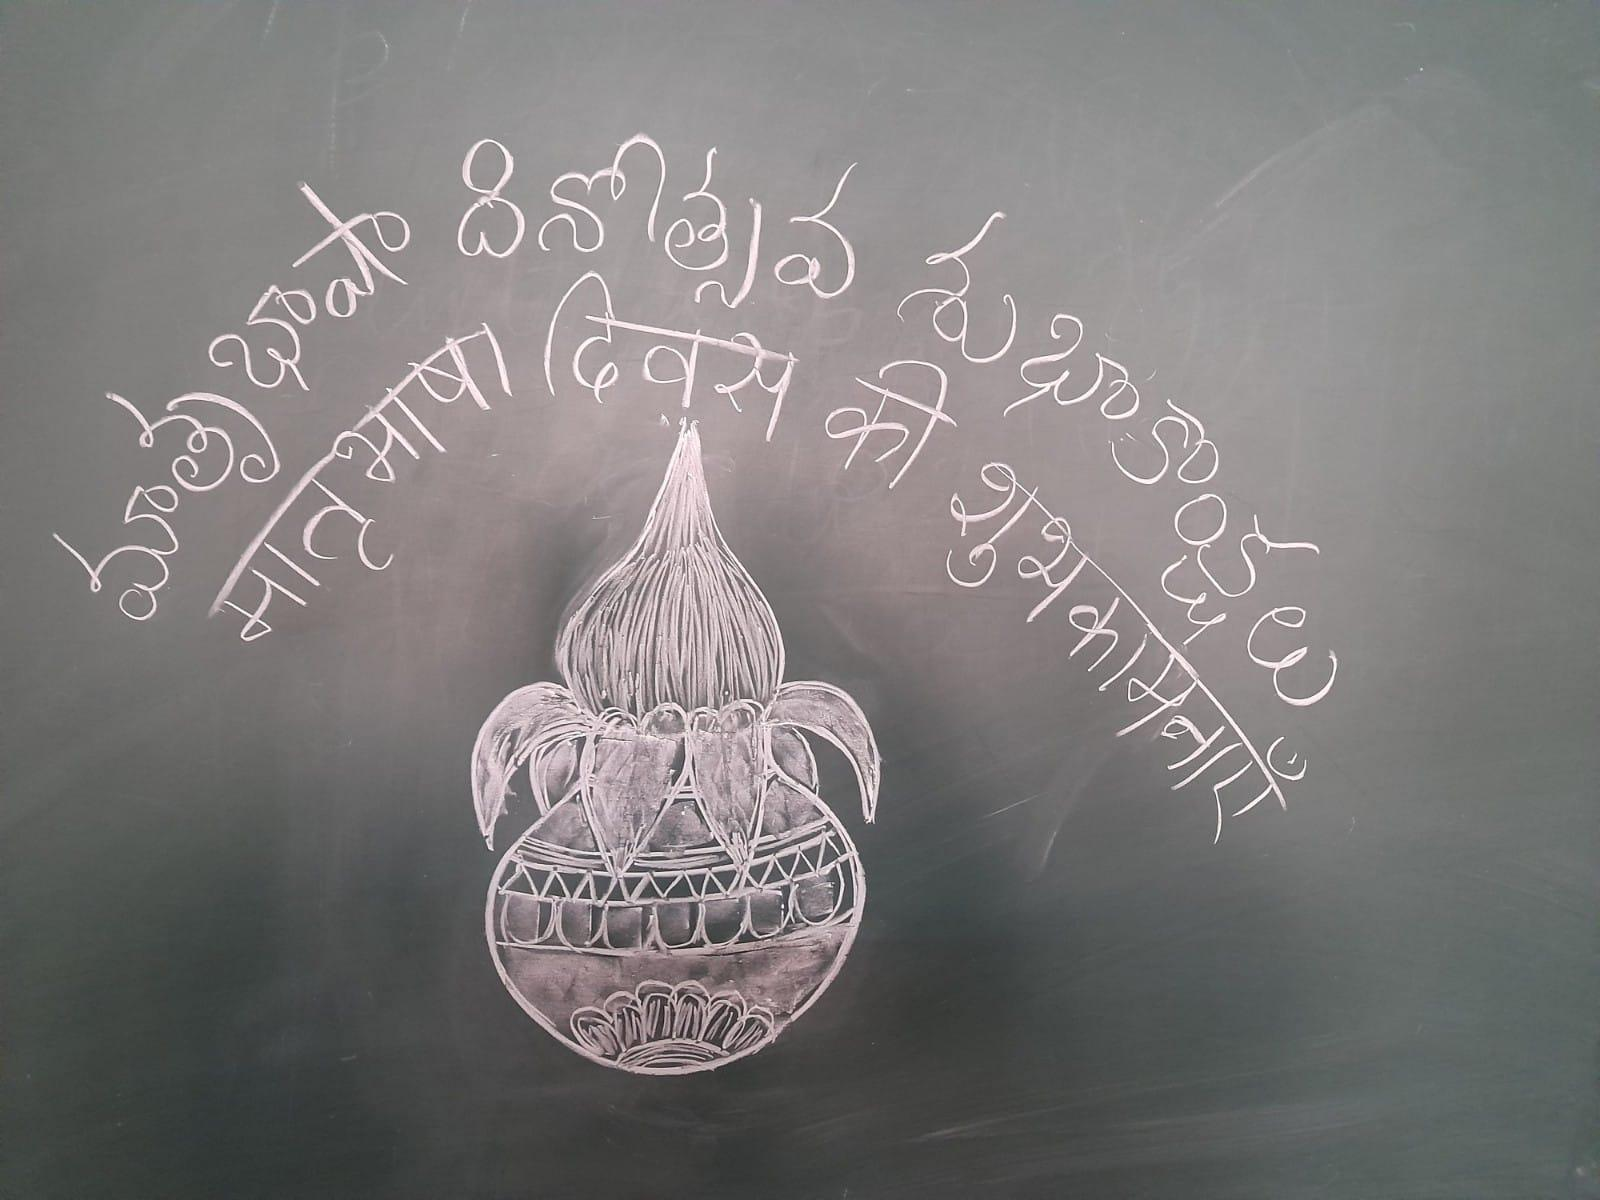 మాతృభాషా దినోత్సవ శుభాకాంక్షలు
मातृभाषा दिवस की शुभकामनाएँ